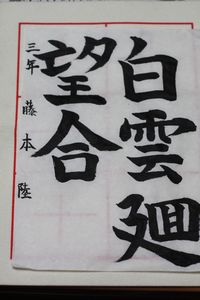 白雲廻
望合
三年 藤本 陸